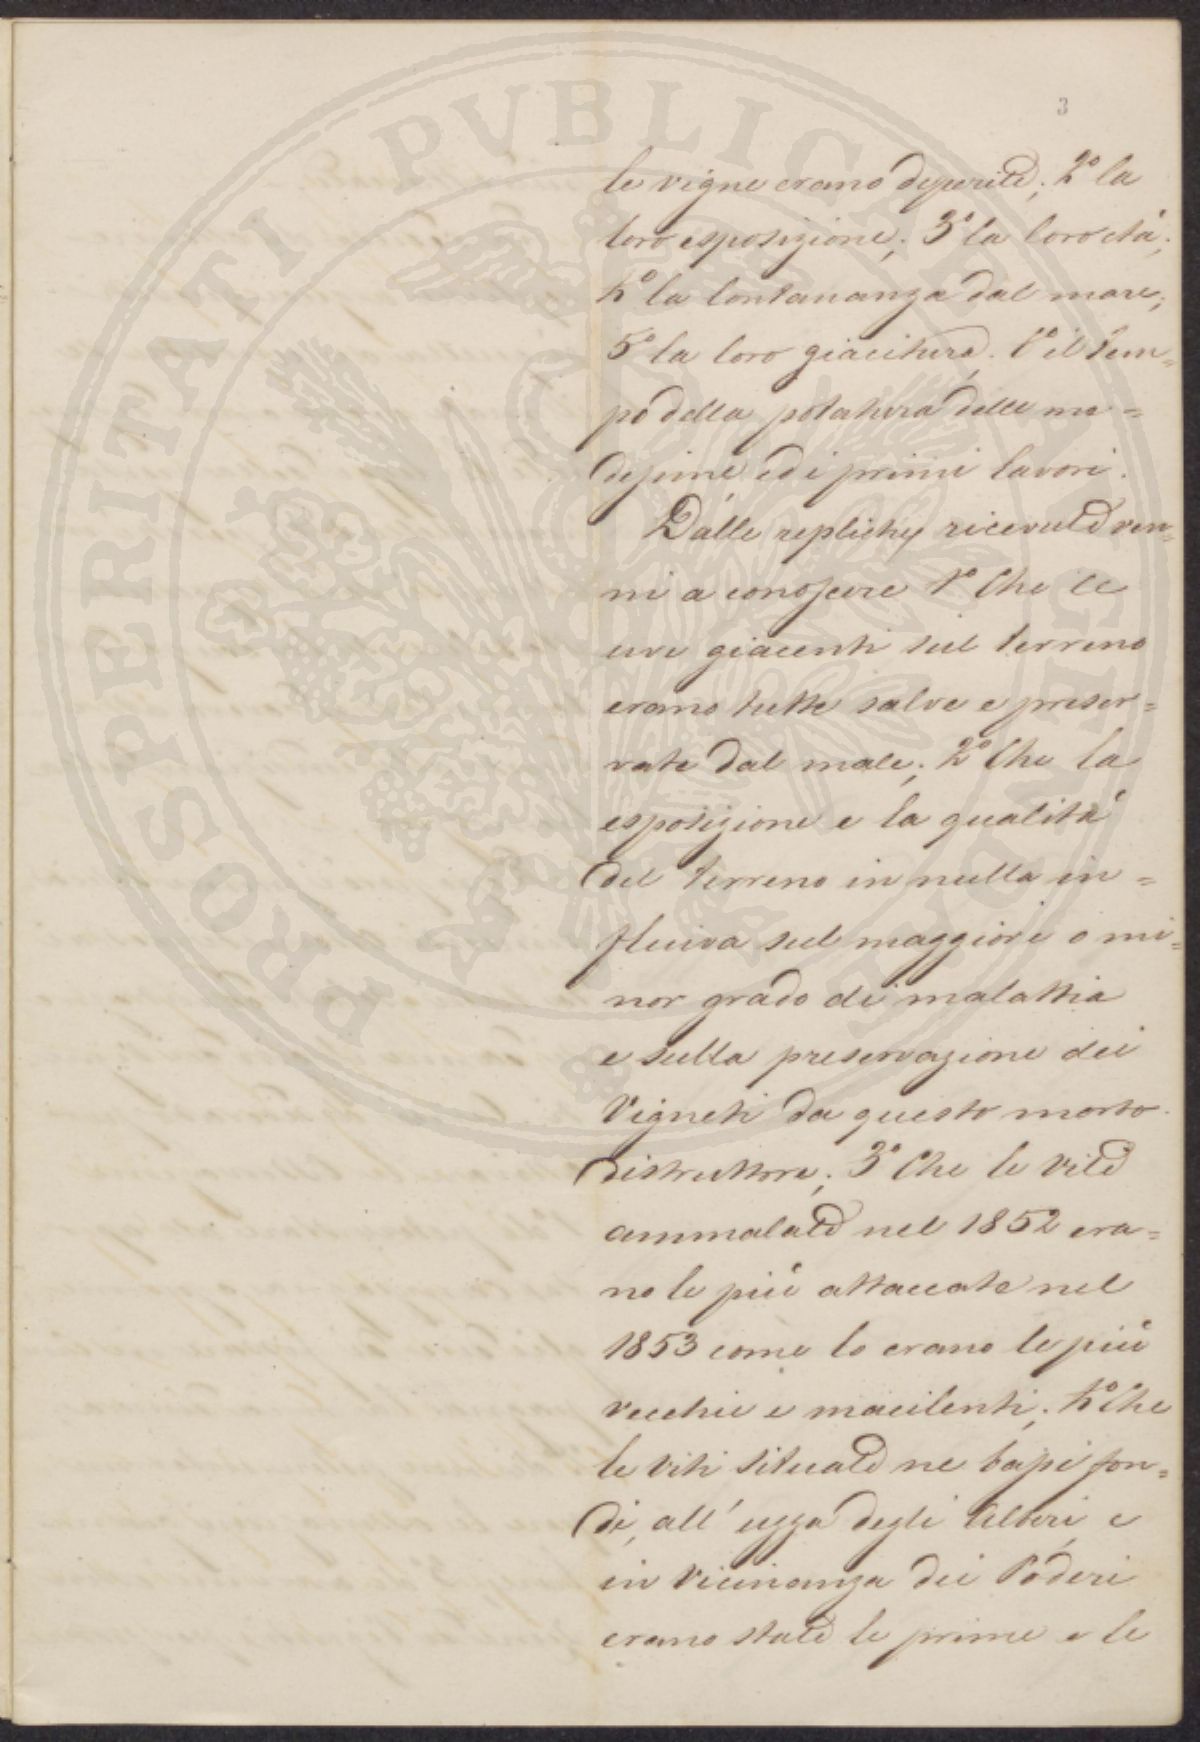 PROSPERITATI PVBLICAE AVGENDAE
3
le vigne erano deperite; 2° la
loro esposizione; 3° la loro età;
4° la lontananza dal mare;
5° la loro giacitura. 6° il tem=
po della potatura delle me=
desime ed i primi lavori.
Dalle repliche ricevute ven=
ni a conoscere 1° Che le
uve giacenti sul terreno
erano tutte salve e preser=
vate dal male; 2° Che la
esposizione e la qualità
del terreno in nulla in=
fluiva sul maggiore o mi=
nor grado di malattia
e sulla preservazione dei
Vigneti da questo morbo
distruttore; 3° Che le vite
ammalate nel 1852 era=
no le più attaccate nel
1853 come lo erano le più
vecchie e macilenti; 4° Che
le viti situate ne bassi fon=
di, all'uggia degli Alberi, e
in vicinanza dei Poderi
erano state le prime e le